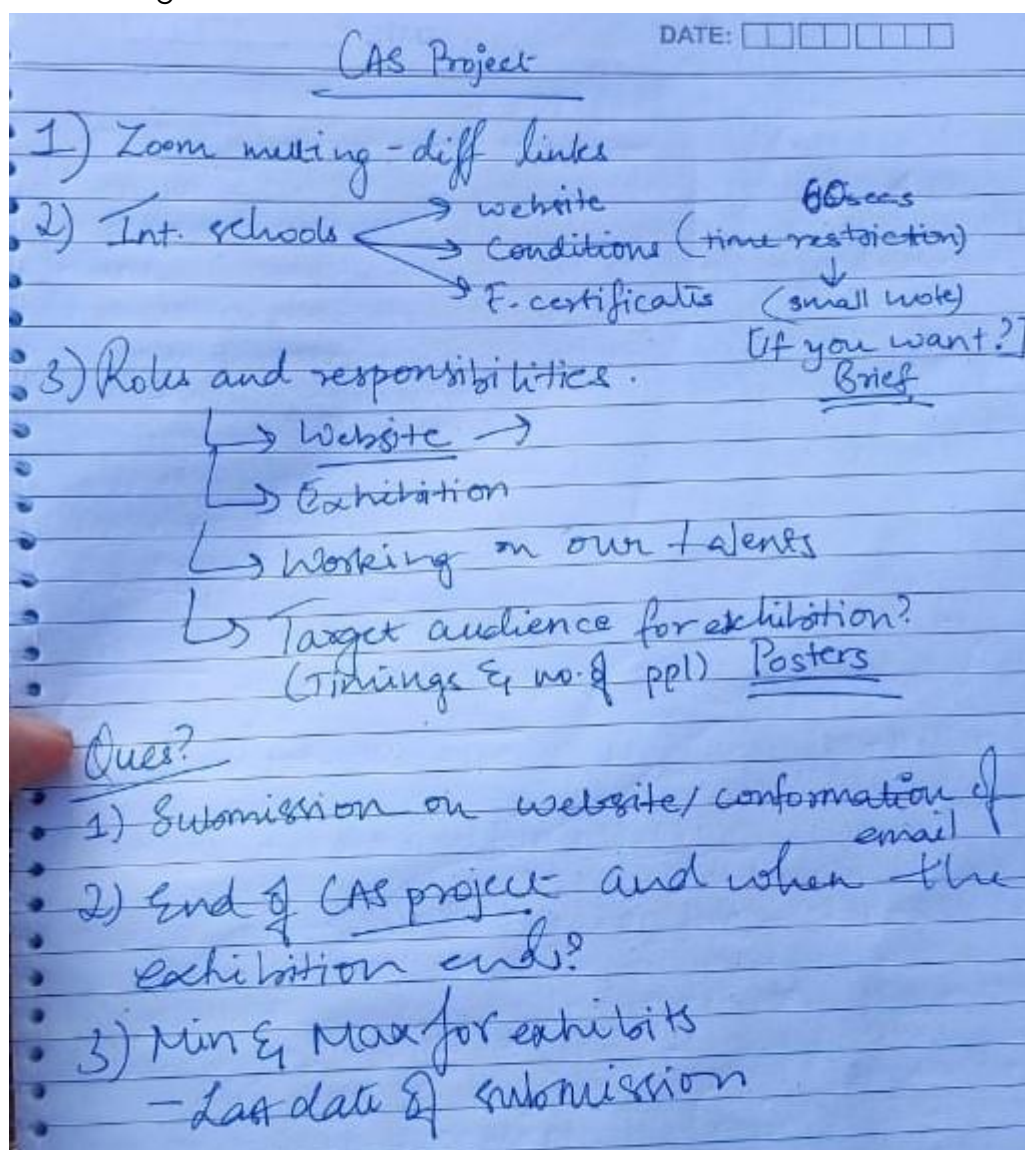 DATE:
CAS Project
1) Zoom meeting - diff links
2) Int. schools → website 60secs
→ Conditions (time restriction)
↓
→ E-certificates (small note)
[if you want?]
Brief
3) Roles and responsibilities.
↳ Website →
↳ Exhibition
↳ Working on our talents
↳ Target audience for exhibition?
(Timings & no. of ppl) Posters
Ques?
1) Submission on website/ conformation of
email
2) End of CAS project and when the
exhibition ends?
3) Min & Max for exhibits
- Last date of submission